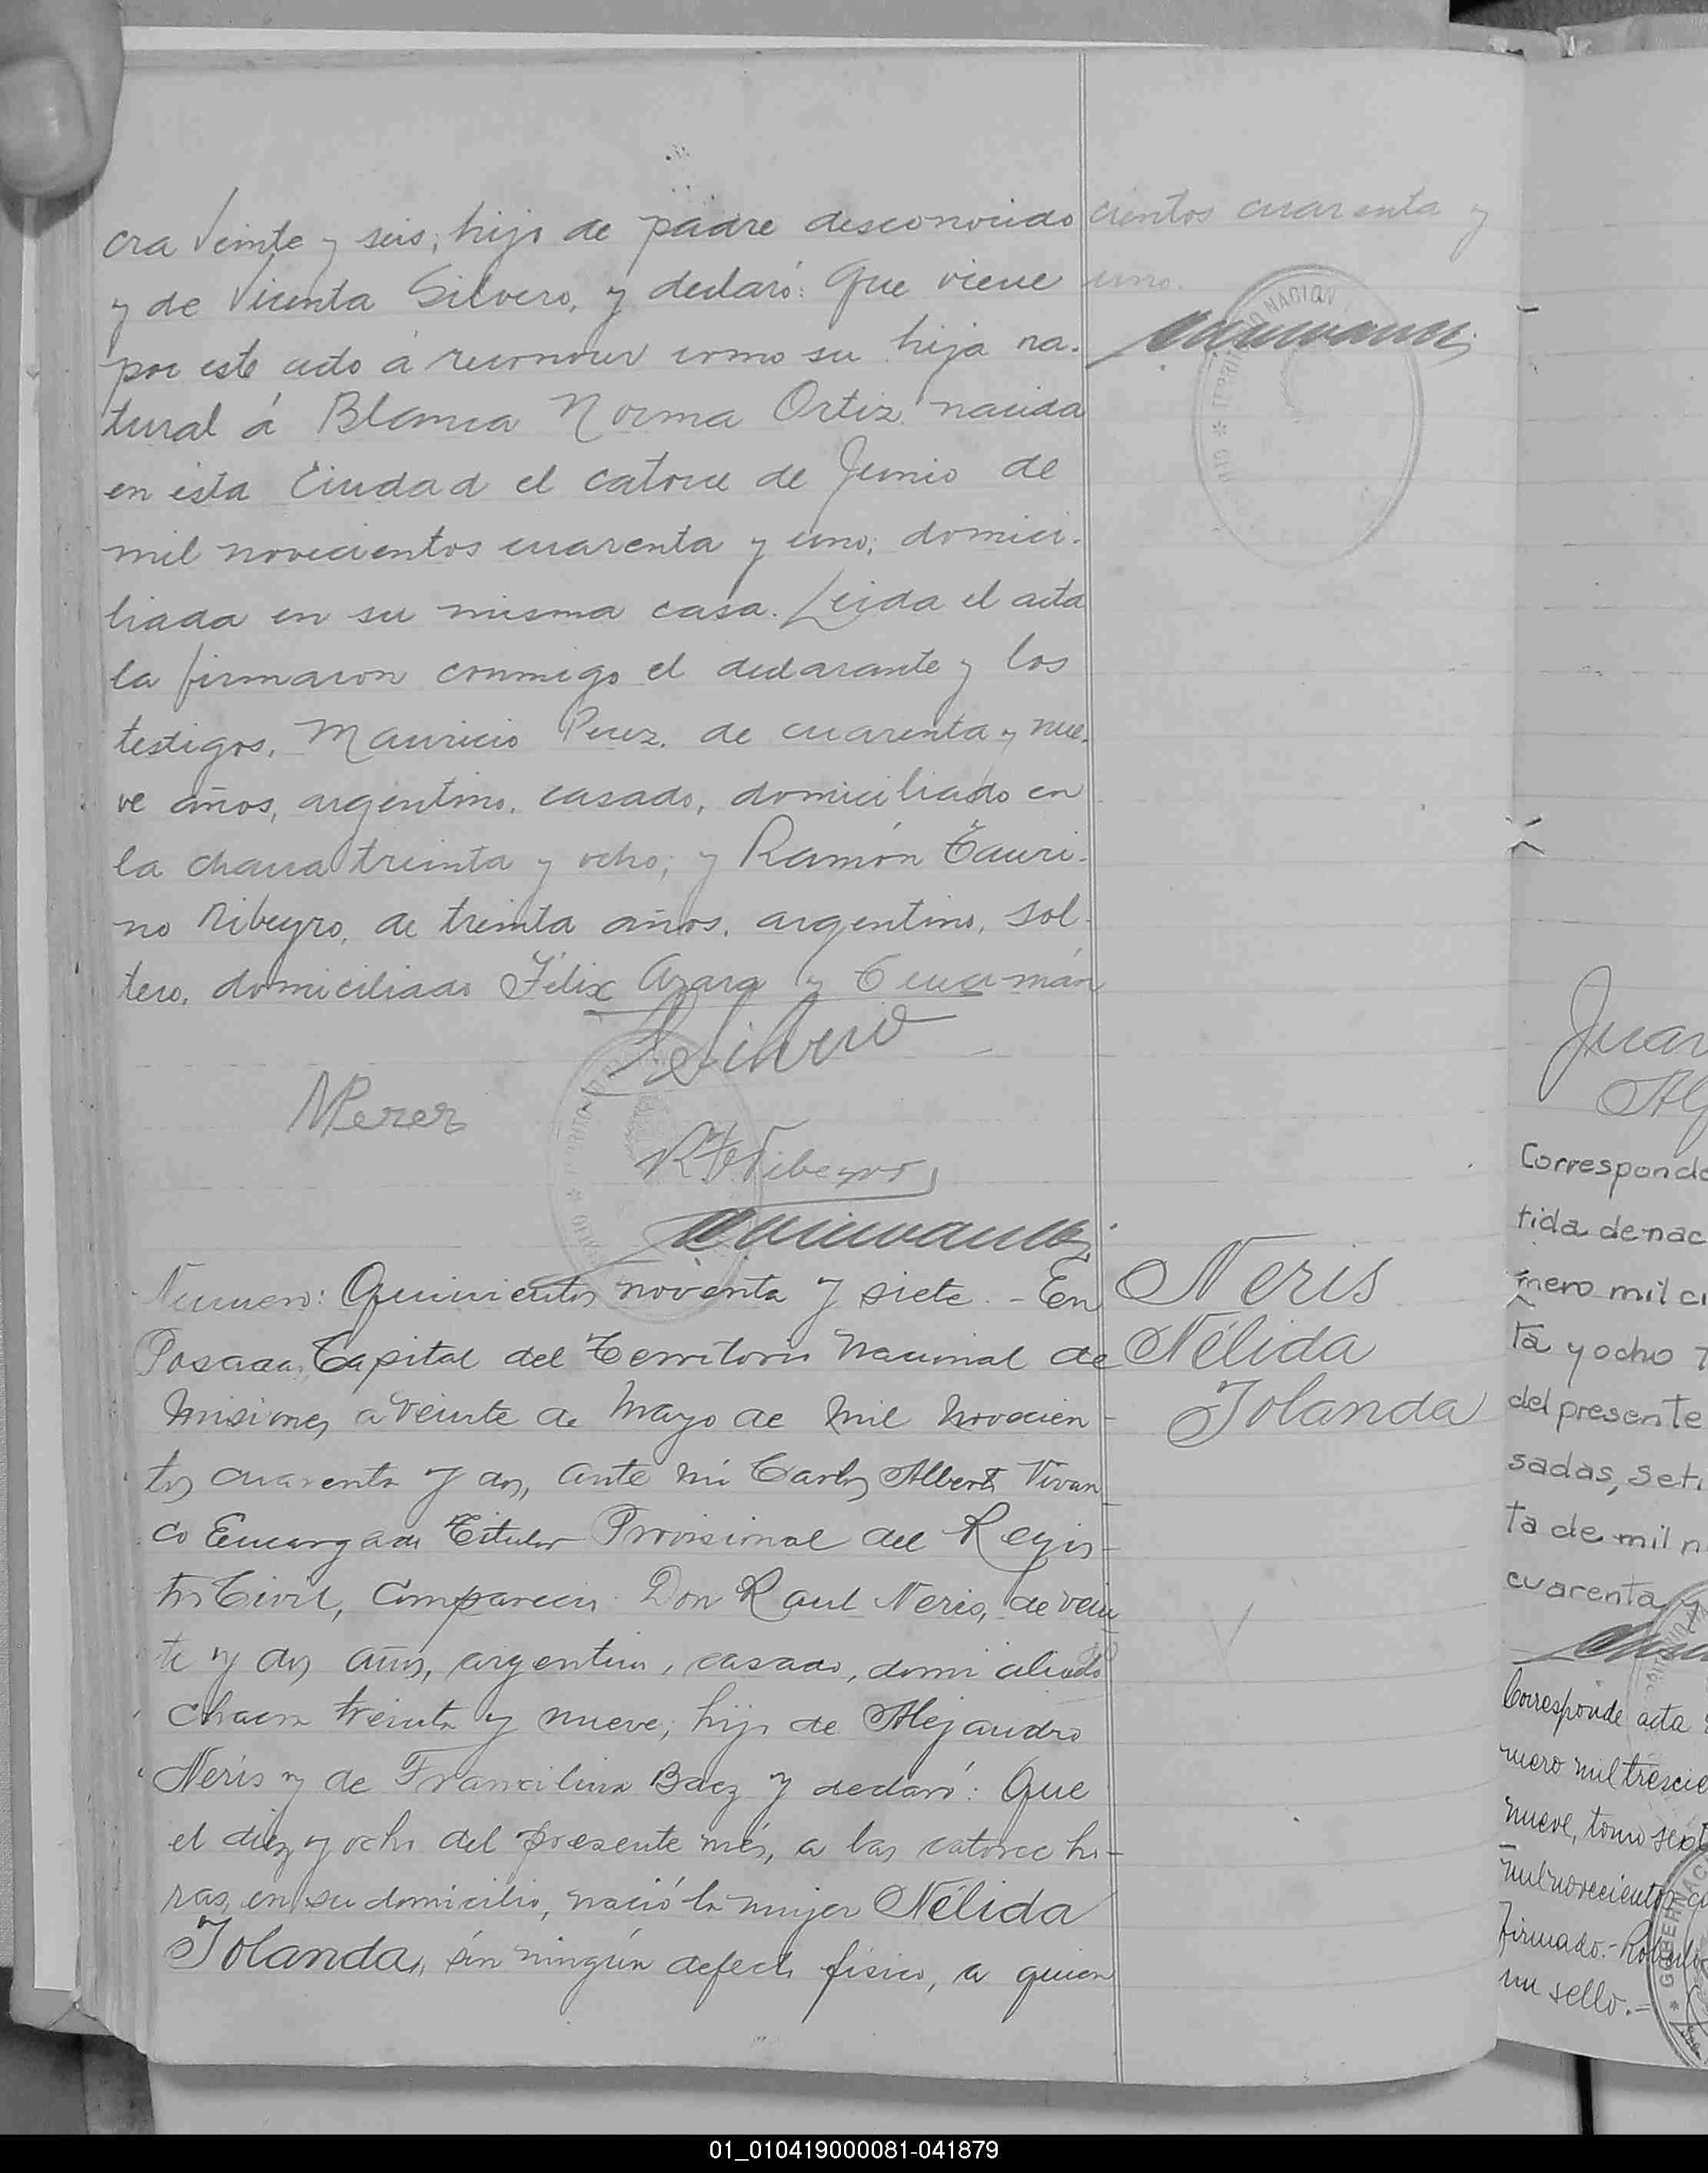 cra Veinte y seis; hijo de padre desconocido
y de Vicenta Silvero, y declaró: Que viene
por este acto á reconocer como su hija na-
tural á Blanca Norma Ortiz nacida
en esta Ciudad el catorce de Junio de
mil novecientos cuarenta y uno; domici-
liada en su misma casa. Leida el acta
la firmaron conmigo el declarante y los
testigos, Mauricio Perez, de cuarenta y nue-
ve años, argentino, casado, domiciliado en
la chacra treinta y ocho; y Ramón Tauri-
no Ribeyro, de treinta años, argentino, sol-
tero, domiciliado Félix Azara y Tucumán
cientos cuarenta y
uno.
Silvero
MPerez
RTRibeyro
Numero: Quinientos noventa y siete.- En
Posadas, Capital del Territorio Nacional de
Misiones, a veinte de Mayo de Mil novecien-
tos cuarenta y dos, ante mi Carlos Alberto Vivan-
co Encargado Titular Provisional del Regis-
tro Civil, Comparecio Don Raul Neris, de vein
te y dos años, argentino, casado, domiciliado
chacra treinta y nueve, hijo de Alejandro
Neris y de Francilina Baez y declaró: Que
el diez y ocho del presente més, a las catorce ho-
ras, en su domicilio, nació la mujer Nélida
Jolanda, sin ningún defecto físico, a quien
Neris
Nélida
Jolanda
Juan
Corresponde
tida de nac
mero mil ci
ta y ocho T
del presente
sadas, seti
ta de mil n
cuarenta y
Corresponde acta
mero mil trescie
nueve, tomo sept
mil novecientos cu
Firmado.-
un sello.-
01_010419000081-041879